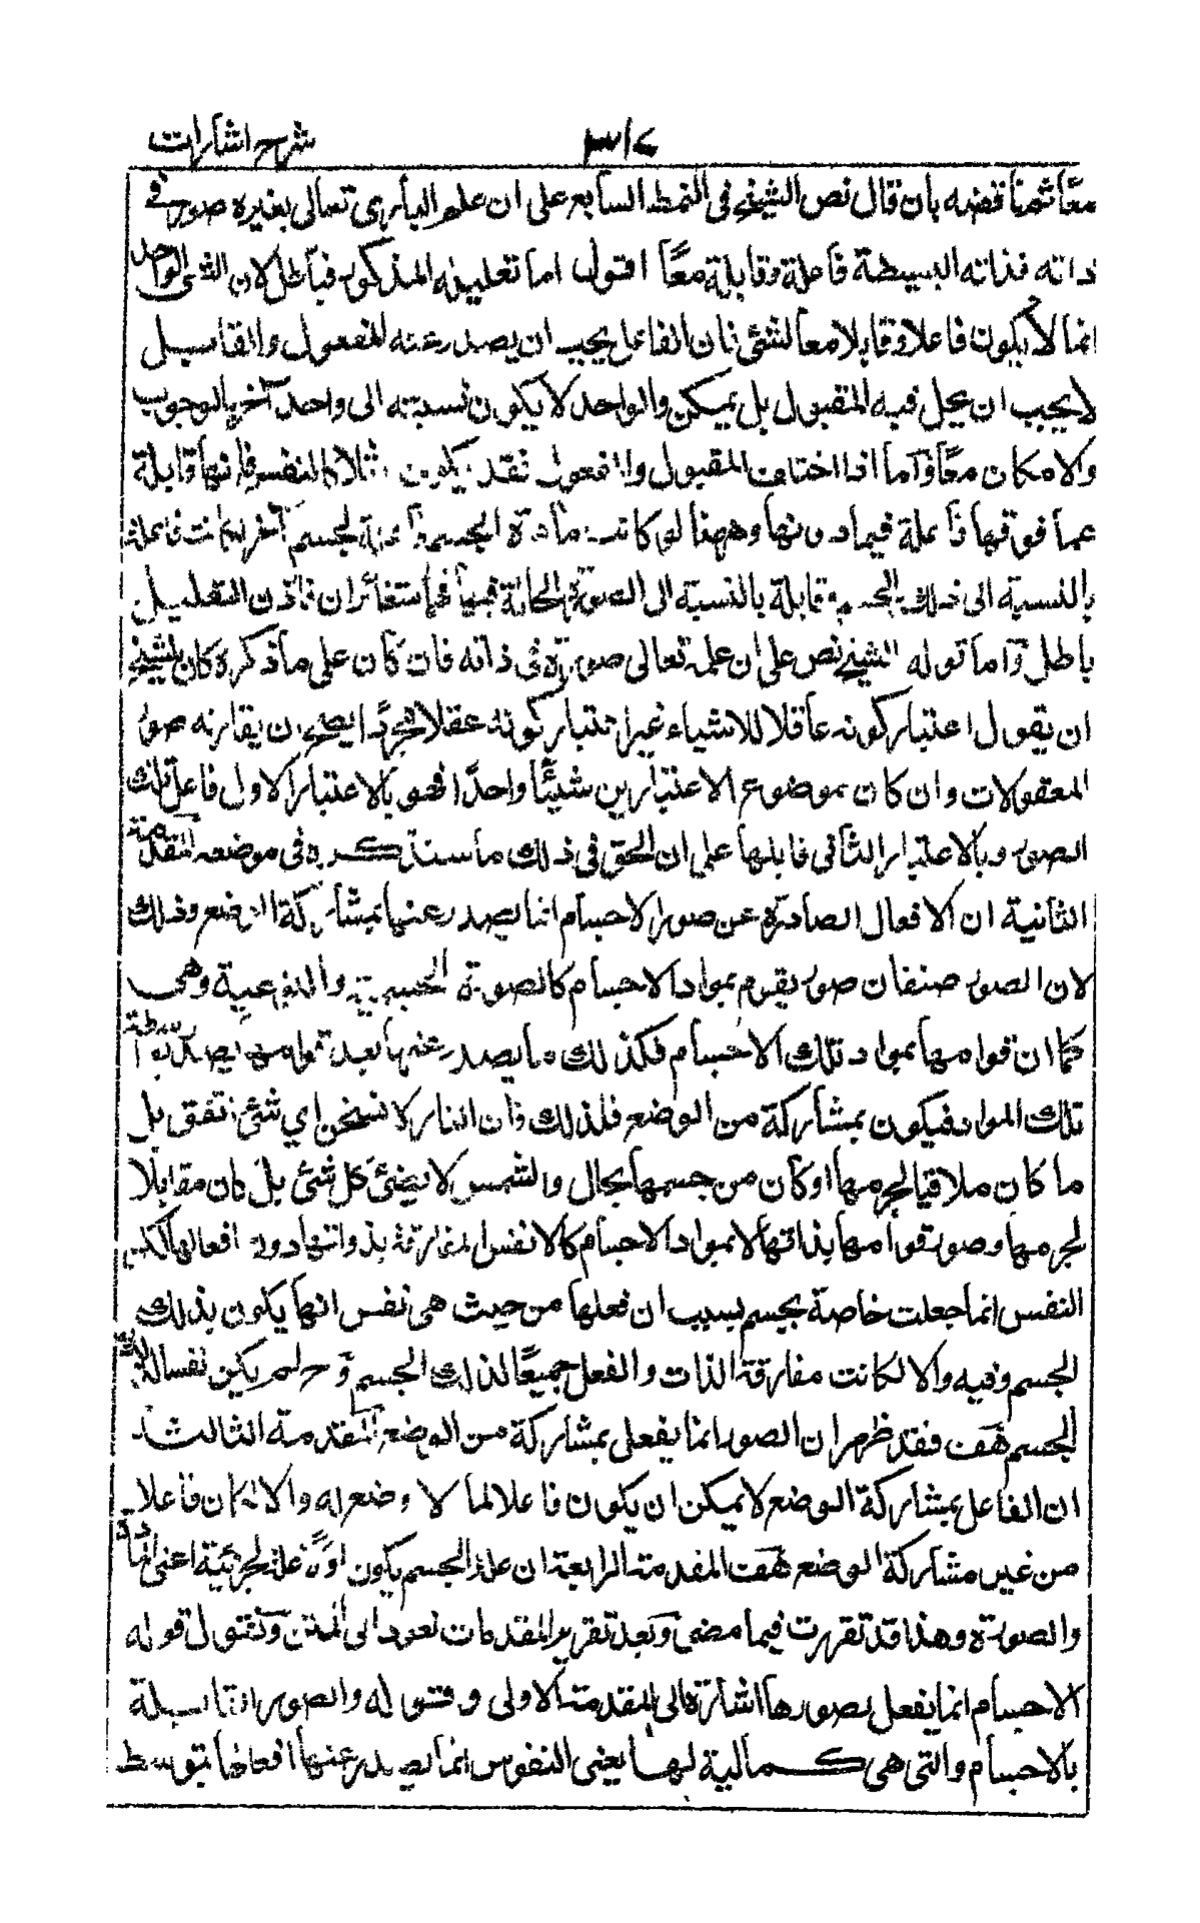 شرح اشارات ٣١٧
معًا ثم ناقضه بان قال نص الشيخ فى النمط السابع على ان علم البارى تعالى بغيره صورة فى
ذاته فذاته البسيطة فاعلة وقابلة معًا اقول اما تعليله المذكور فباطل لان الشئ الواحد
انما لا يكون فاعلا وقابلا معا لشئ فان الفاعل يجب ان يصدر عنه المفعول والقابل
لا يجب ان يحل فيه المقبول بل يمكن والواحد لا يكون نسبته الى واحد آخر بالوجوب
والامكان معًا وَاما اذا اختلف المقبول والمفعول فقد يكون مثلا كالنفس فانها قابلة
عما فوقها فاعلة فيما دونها وههنا لو كانت مادة الجسم فاعلة لجسم آخر لكانت فاعلة
بالنسبة الى ذلك الجسم وقابلة بالنسبة الى الصورة الحالة فيها فهما متغائران فاذن التعليل
باطل وَاما قوله الشيخ نص على ان علمه تعالى صورة فى ذاته فان كان على ما ذكره كان للشيخ
ان يقول اعتبار كونه عاقلا للاشياء غير اعتبار كونه عقلا مجردًا يصح ان يقارنه صور
المعقولات وان كان موضوع الاعتبارين شيئًا واحدًا فهو بالاعتبار الاول فاعل تلك
الصور وبالاعتبار الثانى قابلها على ان الحق فى ذلك ما سنذكره فى موضعه المقدمة
الثانية ان الافعال الصادرة عن صور الاجسام انما يصدر عنها بمشاركة الوضع وذلك
لان الصور صنفان صور يقوم بمواد الاجسام كالصورة الجسمية والنوعية وهى
كما ان قوامها بمواد تلك الاجسام فكذلك ما يصدر عنها بعد قوامها يصدر بواسطة
تلك المواد فيكون بمشاركة من الوضع فلذلك فان النار لا تسخن اى شئ اتفق بل
ما كان ملاقيا لجرمها او كان من جسمها بحال والشمس لا يضئ كل شئ بل كان مقابلا
لجرمها وصور قوامها بذاتها لا بمواد الاجسام كالانفس المفارقة بذواتها دون افعالها لكن
النفس انما جعلت خاصة بجسم بسبب ان فعلها من حيث هى نفس انها يكون بذلك
الجسم وفيه والا لكانت مفارقة الذات والفعل جميعًا لذلك الجسم وَح لم يكن نفسا لذلك
الجسم هَف فقد ظهر ان الصور انما يفعل بمشاركة من الوضع المقدمة الثالثة
ان الفاعل بمشاركة الوضع لا يمكن ان يكون فاعلا لما لا وضع له والا لكان فاعلا
من غير مشاركة الوضع هَف المقدمة الرابعة ان علة الجسم يكون اوًّلا علة لجزئية اعنى المادة
والصورة وهذا قد تقررت فيما مضى وَبعد تقرير المقدمات نعود الى المتن وَنقول قوله
الاجسام انما يفعل بصورها اشارة الى المقدمة الاولى وقوله والصور القابلة
بالاجسام والتى هى كمالية لها يعنى النفوس انما يصدر عنها افعالها بتوسط